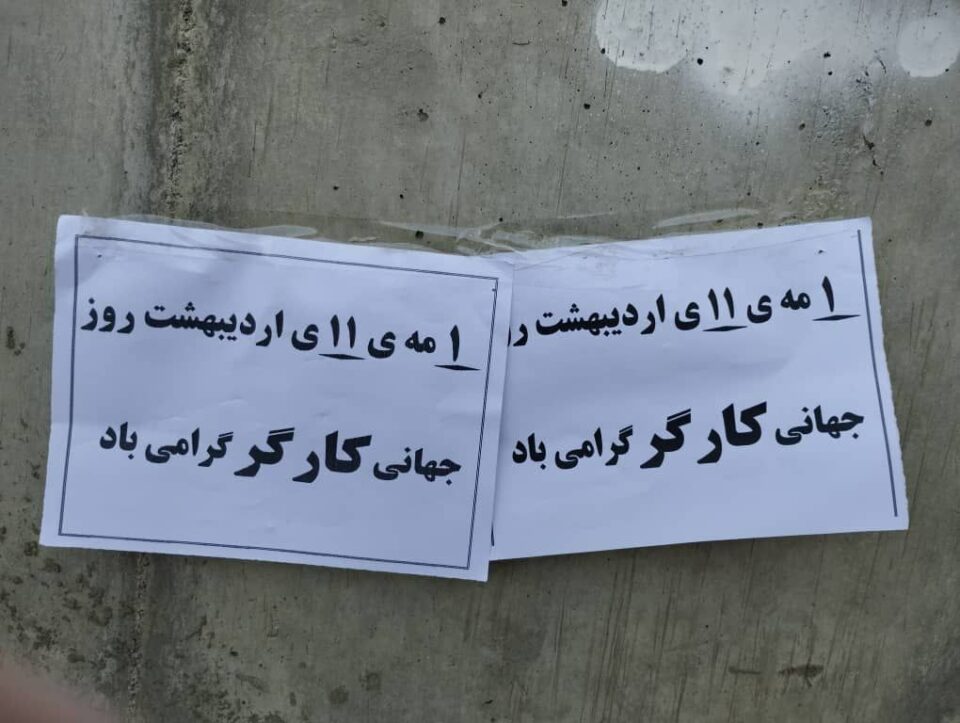 ۱ مه ی ۱۱ ی اردیبهشت ر
جهانی کارگر گرامی باد
۱ مه ی ۱۱ ی اردیبهشت روز
جهانی کارگر گرامی باد